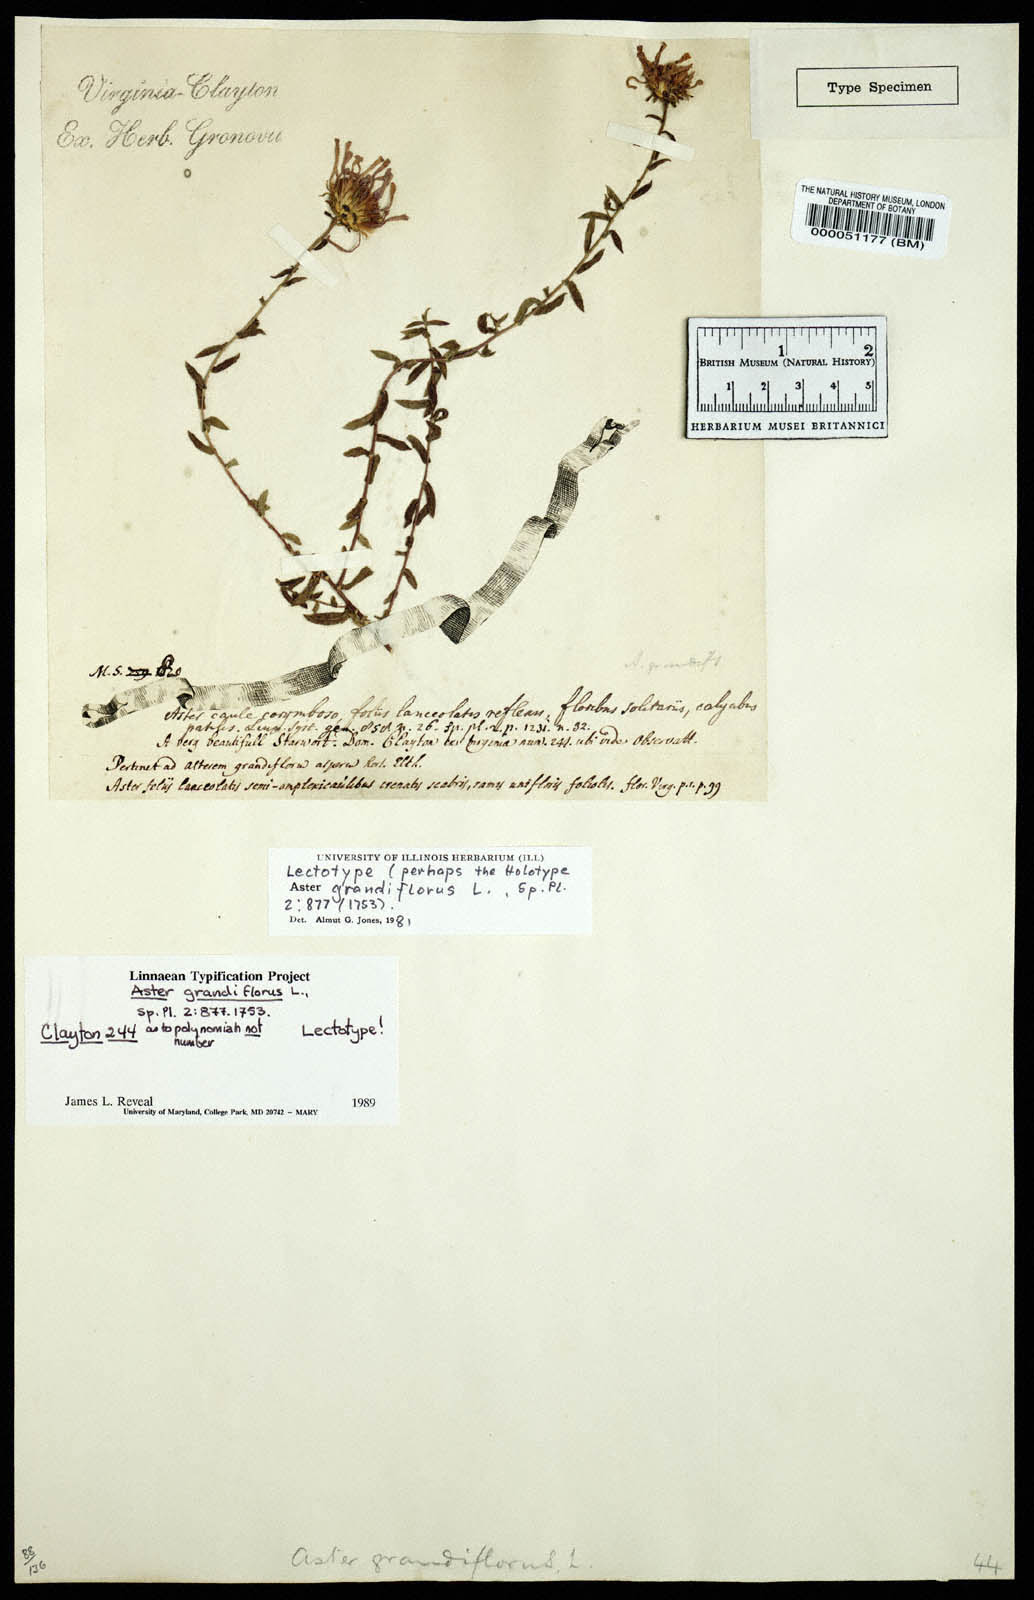 Virginia-Clayton
Ex. Herb. Gronovii
Type Specimen
THE NATURAL HISTORY MUSEUM, LONDON
DEPARTMENT OF BOTANY
000051177 (BM)
1 2
BRITISH MUSEUM (NATURAL HISTORY)
1 2 3 4 5
HERBARIUM MUSEI BRITANNICI
A. grandifl
M.S.
Aster caule corymboso, foliis lanceolatis reflexis, floribus solitariis, calycibus
patulis. Linn. Syst. gen. 858. n. 26. Sp. pl. 2. p. 1231. n. 32.
A very beautifull Starwort. Dom. Clayton ex Virginia num. 241. ubi vide Observatt.
Pertinet ad asterem grandiflorum asperum Hort. Elth.
Aster foliis lanceolatis semi-amplexicaulibus crenatis scabris, ramis unifloris foliolis. flor. Virg. p. 1. p. 99
UNIVERSITY OF ILLINOIS HERBARIUM (ILL)
Lectotype (perhaps the Holotype
Aster grandiflorus L., Sp. Pl.
2:877 (1753).
Det. Almut G. Jones, 1981
Linnaean Typification Project
Aster grandiflorus L.,
Sp. Pl. 2:877. 1753.
Clayton 244 as to polynomial not number Lectotype!
James L. Reveal 1989
University of Maryland, College Park, MD 20742 – MARY
88/136
Aster grandiflorus, L.
44